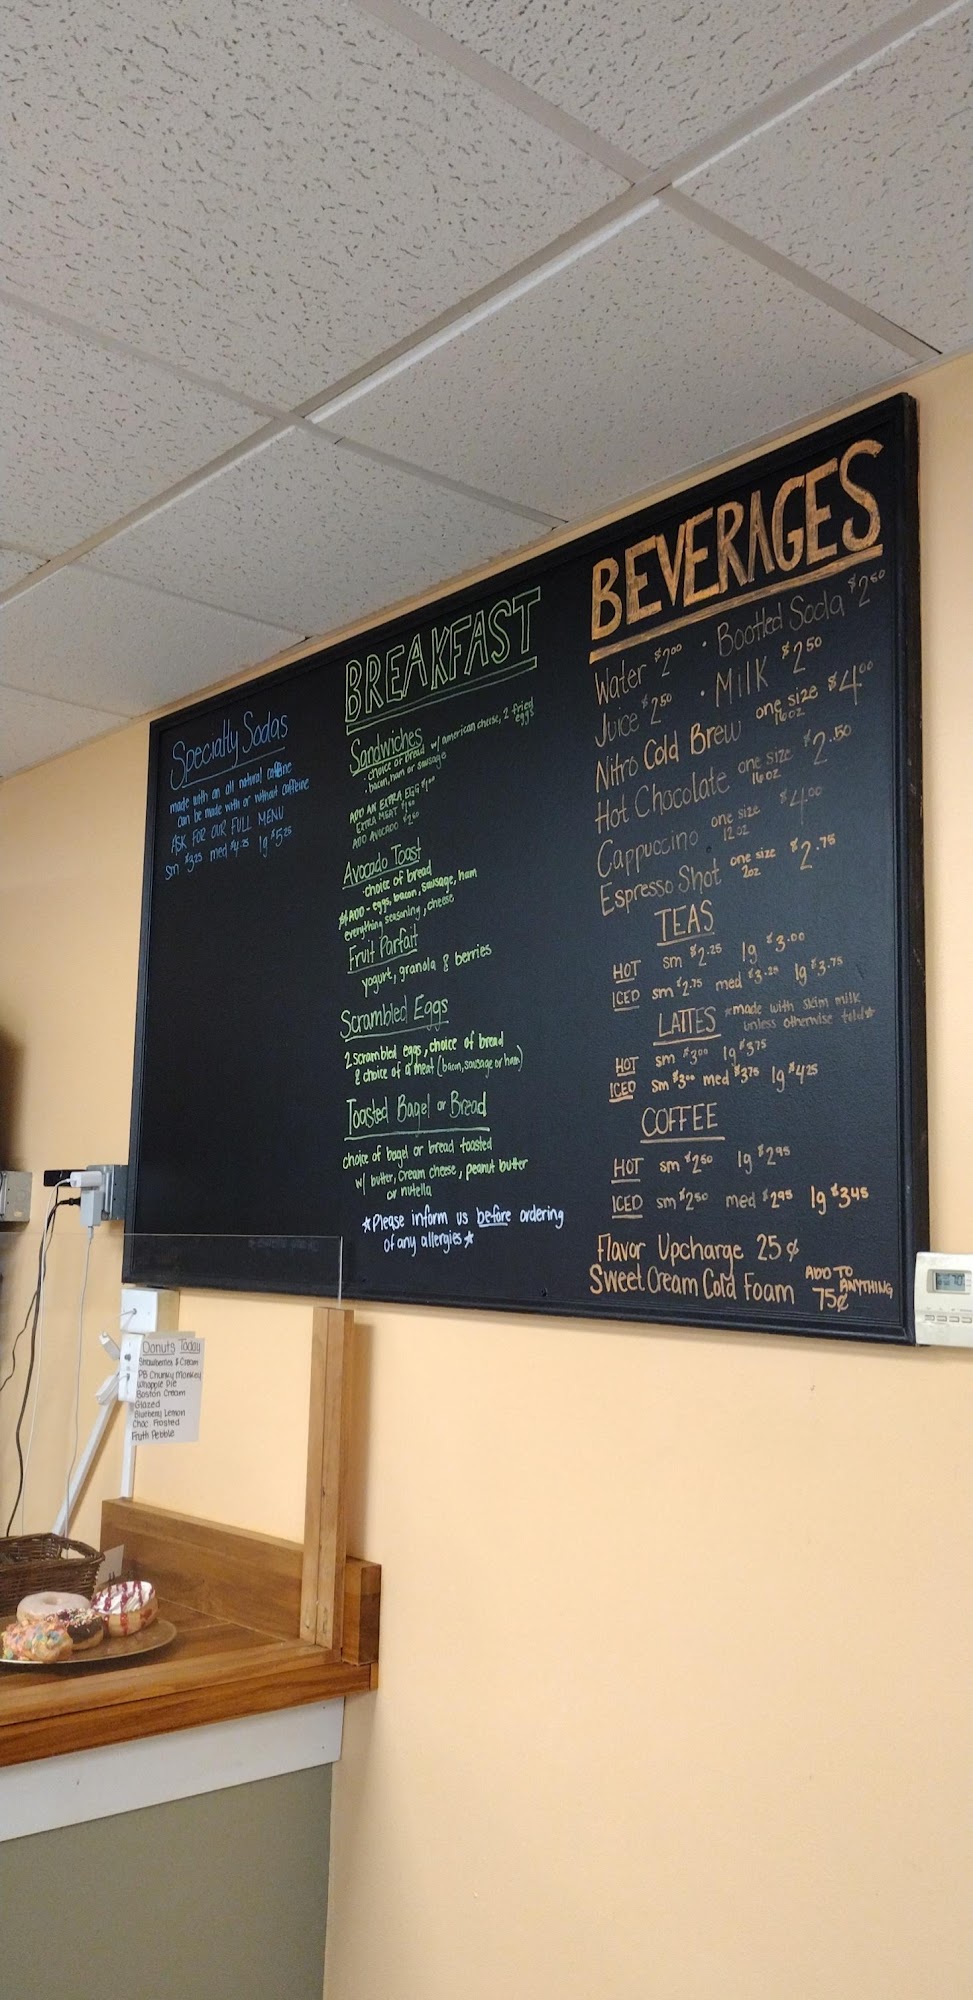 Specialty Sodas
made with an all natural caffeine
can be made with or without caffeine
ASK FOR OUR FULL MENU
sm $3.25 med $4.25 lg $5.25
BREAKFAST
Sandwiches
· choice of bread w/ american cheese, 2 fried eggs
· bacon, ham or sausage
ADD AN EXTRA EGG $1.00
EXTRA MEAT
ADD AVOCADO
Avocado Toast
· choice of bread
ADD - eggs, bacon, sausage, ham
everything seasoning, cheese
Fruit Parfait
yogurt, granola & berries
Scrambled Eggs
2 scrambled eggs, choice of bread
& choice of a meat (bacon, sausage or ham)
Toasted Bagel or Bread
choice of bagel or bread toasted
w/ butter, cream cheese, peanut butter
or nutella
*Please inform us before ordering
of any allergies*
BEVERAGES
Water $2.00 · Bootled Soda $2.50
Juice $2.50 · Milk $2.50
Nitro Cold Brew one size 16oz $4.00
Hot Chocolate one size 16oz $2.50
Cappuccino one size 12oz $4.00
Espresso Shot one size 2oz $2.75
TEAS
HOT sm $2.25 lg $3.00
ICED sm $2.75 med $3.25 lg $3.75
LATTES *made with skim milk
unless otherwise told*
HOT sm $3.00 lg $3.75
ICED sm $3.00 med $3.75 lg $4.25
COFFEE
HOT sm $2.50 lg $2.95
ICED sm $2.50 med $2.95 lg $3.45
Flavor Upcharge 25¢
Sweet Cream Cold Foam ADD TO ANYTHING 75¢
Donuts Today
Strawberries & Cream
PB Chunky Monkey
Whoopie Pie
Boston Cream
Glazed
Blueberry Lemon
Choc. Frosted
Fruity Pebble